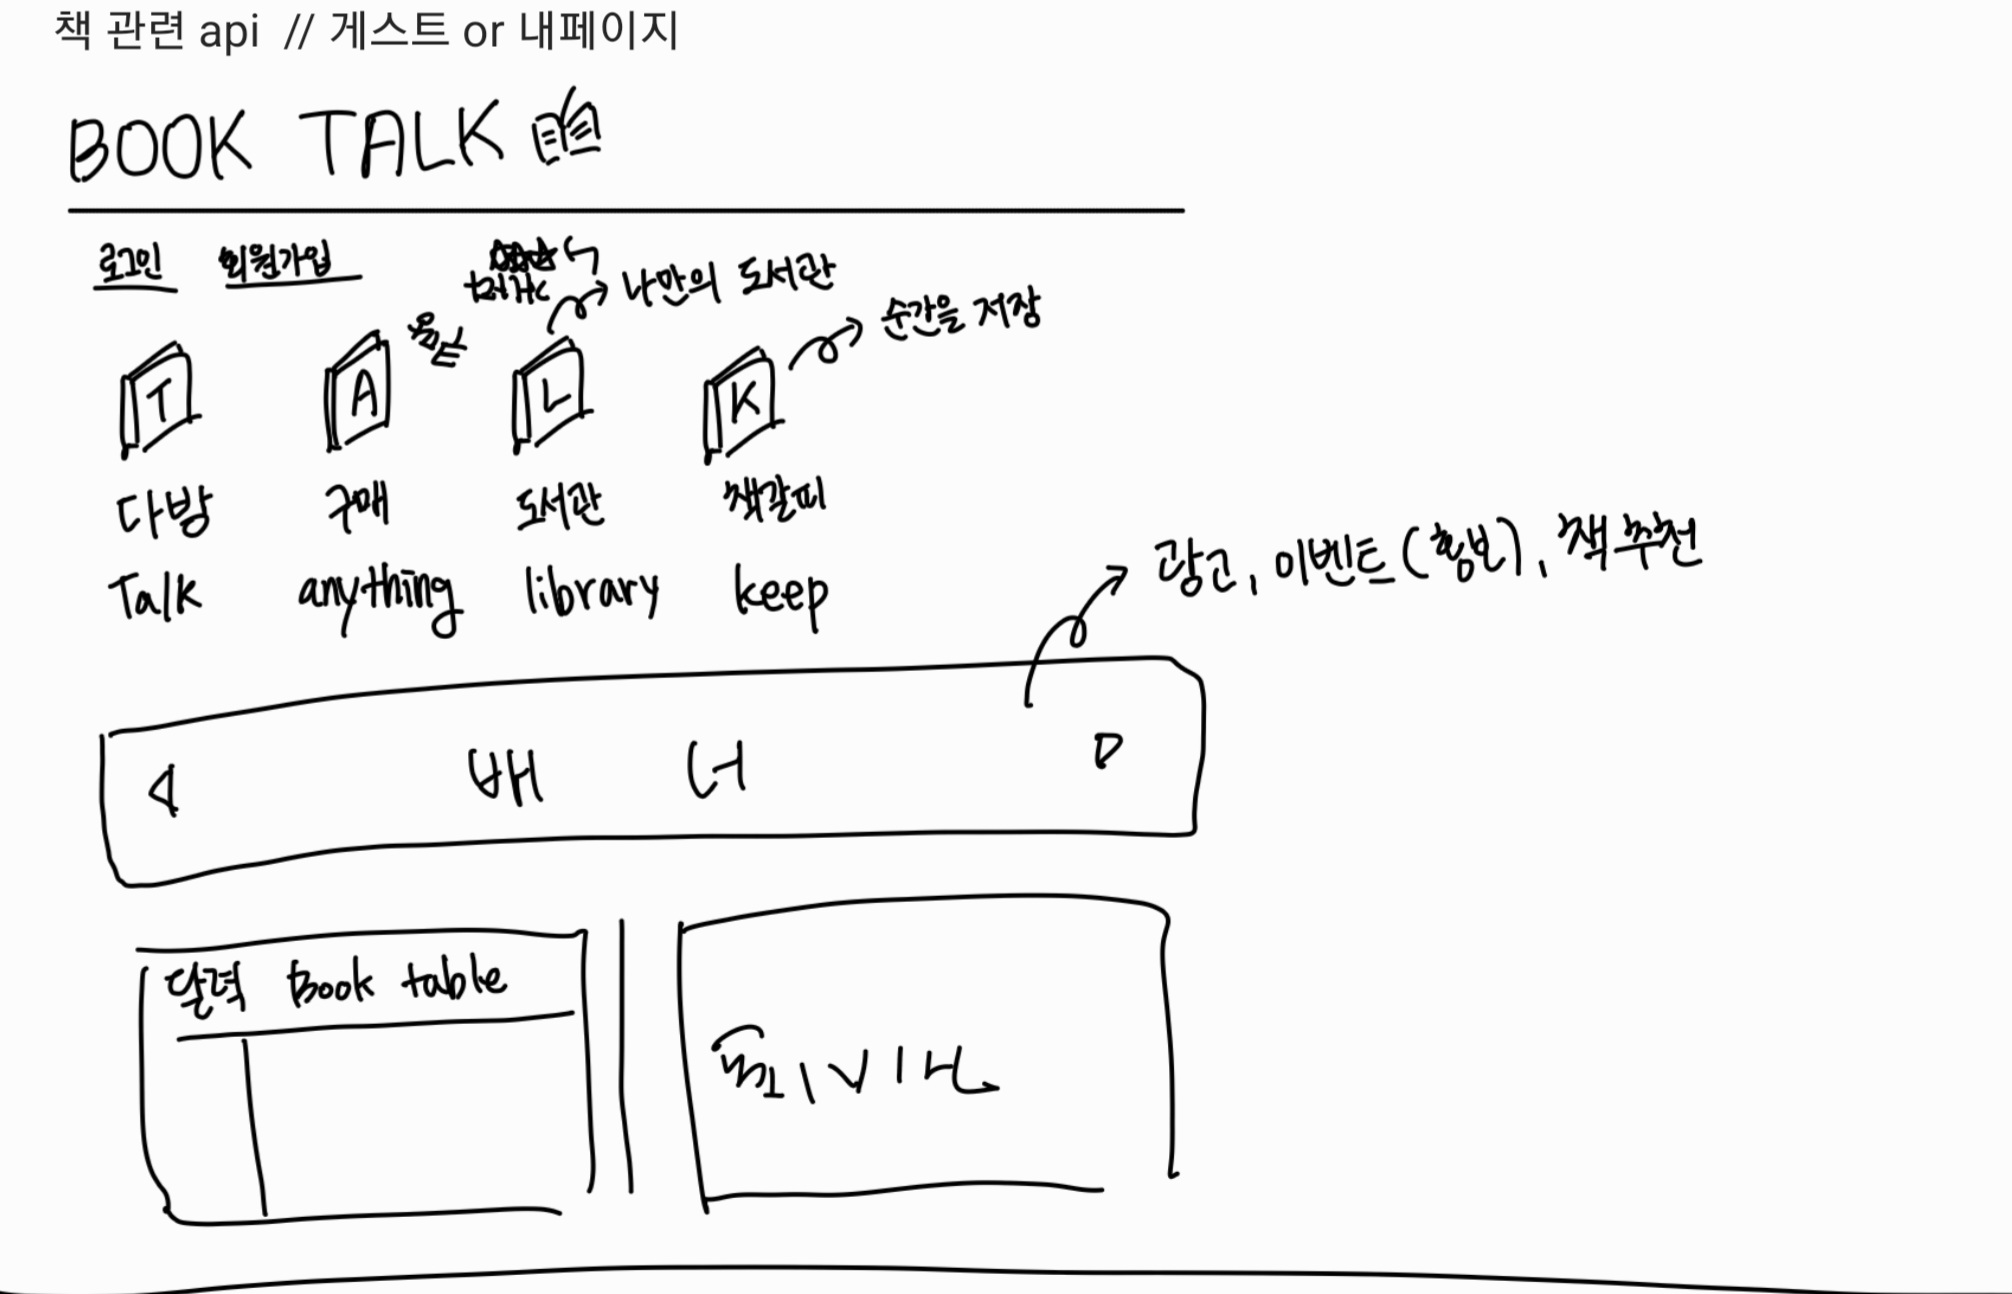 책 관련 api // 게스트 or 내페이지
BOOK TALK
로그인 회원가입
나만의 도서관
순간을 저장
T A L K
다방 구매 도서관 책갈피
Talk anything library keep
광고, 이벤트(홍보), 책 추천
배 너
달력 Book table